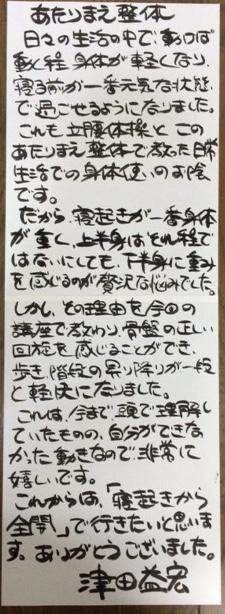 あたりまえ整体
日々の生活の中で、動けば
動く程 身体が軽くなり、
寝る前が一番元気な状態
で過ごせるようになりました。
これも立腰体操とこの
あたりまえ整体で教わった日常
生活での身体使いのお陰
です。
だから、寝起きが一番身体
が重く、上半身はそれ程で
はないにしても、下半身に重み
を感じるのが贅沢な悩みでした。
しかし、その理由を今回の
講座で教わり、骨盤の正しい
回旋を感じることができ、
歩き、階段の昇り降りが一段
と軽快になりました。
これは、今まで頭で理解し
ていたものの、自分ができな
かった動きなので、非常に
嬉しいです。
これからは、「寝起きから
全開」で行きたいと思いま
す。ありがとうございました。
津田益宏